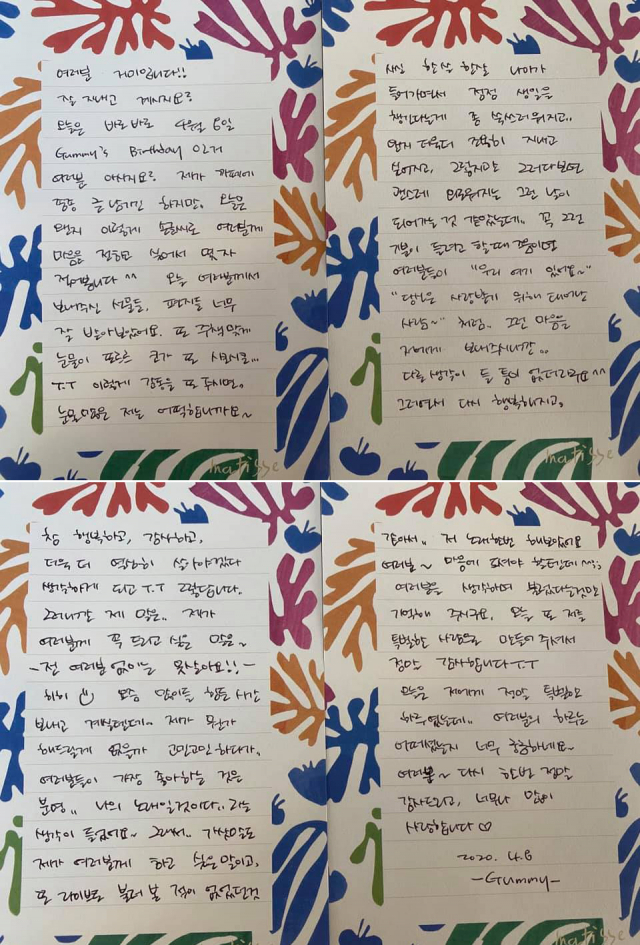 여러분 거미입니다!!
잘 지내고 계시지요?
오늘은 바로바로 4월 8일
Gummy's Birthday 인거
여러분 아시지요? 제가 카페에
평소 글 남기긴 하지만, 오늘은
왠지 이렇게 손글씨로 여러분께
마음을 전하고 싶어서 몇 자
적어봅니다 ^^ 오늘 여러분께서
보내주신 선물들, 편지들 너무
잘 받아보았어요. 또 주책맞게
눈물이 또르르 코가 또 시큰시큰...
T.T 이렇게 감동을 또 주시면..
눈물많은 저는 어떡합니까요~
matisse
사실 한살 한살 나이가
들어가면서 점점 생일을
챙긴다는게 좀 쑥쓰러워지고..
왠지 더욱더 조용히 지내고
보내지고, 그렇지만 또 그러다보면
괜스레 외로워지는 그런 날이
되어가는 것 같았었는데.. 꼭 그런
기분이 들려고 할 때 쯤이면
여러분들이 "우리 여기 있어요~"
"당신은 사랑받기 위해 태어난
사람~" 처럼.. 그런 마음을
저에게 보내주시니깐..
다른 생각이 들 틈이 없더라구요^^
그러면서 다시 행복해지고..
matisse
참 행복하고, 감사하고,
더욱 더 열심히 살아야겠다
생각하게 되고 T.T 그렇답니다.
그러니깐 제 말은.. 제가
여러분께 꼭 드리고 싶은 말은~
-전 여러분 없이는 못살아요!!-
히히 요즘 많이들 힘든 시간
보내고 계실텐데.. 제가 뭔가
해드릴게 없을까 고민고민 하다가,
여러분들이 가장 좋아하는 것은
분명.. 나의 노래일것이다.. 라는
생각이 들었어요~ 그래서.. 가삿말도
제가 여러분께 하고 싶은 말이고,
또 라이브로 불러 본 적이 없었던것
같아서.. 저 노래한번 해보았어요
여러분~ 마음에 드셔야 할텐데^^;;
여러분을 생각하며 불렀다는것만
기억해 주시구요, 오늘 또 저를
특별한 사람으로 만들어 주셔서
정말 감사합니다 T.T
오늘은 저에게 정말 특별한
하루였는데.. 여러분의 하루는
어떠셨을지 너무 궁금하네요~
여러분~ 다시 한번 정말
감사드리고, 너무나 많이
사랑합니다 ♡
2020. 4.8
-Gummy-
matisse